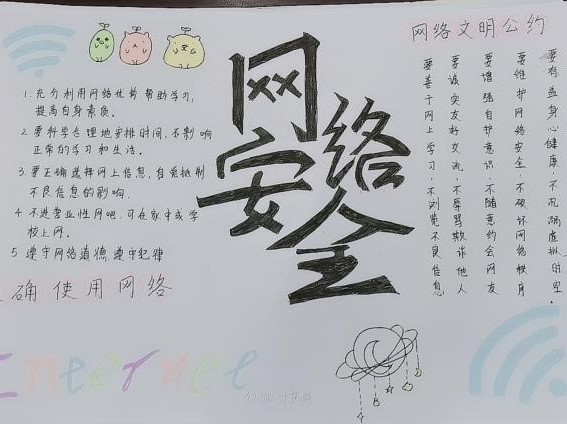 网络安全
1. 充分利用网络优势帮助学习,
提高自身素质。
2. 要科学合理地安排时间,不影响
正常的学习和生活。
3. 要正确选择网上信息,自觉抵制
不良信息的影响。
4. 不进营业性网吧,可在家中或学
校上网。
5. 遵守网络道德,遵守纪律
正确使用网络
Internet
网络文明公约
要善于网上学习·不浏览不良信息
要诚实友好交流·不辱骂欺诈他人
要增强自护意识·不随意约会网友
要维护网络安全·不破坏网络秩序
要有益身心健康·不沉溺虚拟时空·